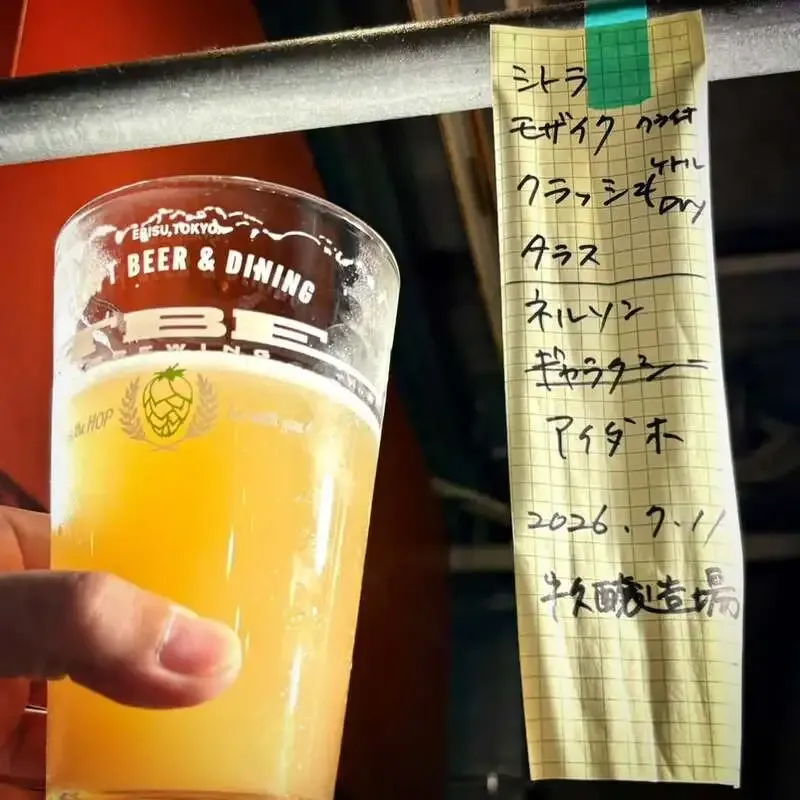 EBISU,TOKYO
BEER & DINING
TBE
BREWING
the HOP
シトラ
モザイク クライオ
クラッシュ ケトル Dry
タラス
ネルソン
ギャラクシー
アイダホ
2026.7.11
牛久醸造場